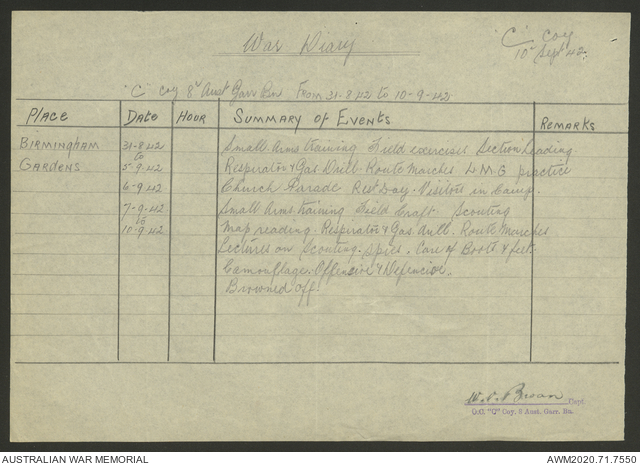 War Diary
"C" Coy
10th Sept 42.
"C" Coy 8th Aust Garr Bn From 31-8-42 to 10-9-42
Place Date Hour Summary of Events Remarks
Birmingham 31-8-42 Small Arms training Field exercises Section Leading
to
Gardens 5-9-42 Respirator & Gas Drill. Route Marches L.M.G practice
6-9-42 Church Parade Rest Day. Visitors in Camp.
7-9-42 Small Arms training Field Craft. Scouting
to
10-9-42 Map reading. Respirator & Gas drill. Route Marches
Lectures on Scouting. Spies. Care of Boots & feet.
Camouflage. Offensive & Defensive.
Browned off!
Brown Capt.
O.C. "C" Coy. 8 Aust. Garr. Bn.
AUSTRALIAN WAR MEMORIAL AWM2020.71.7550